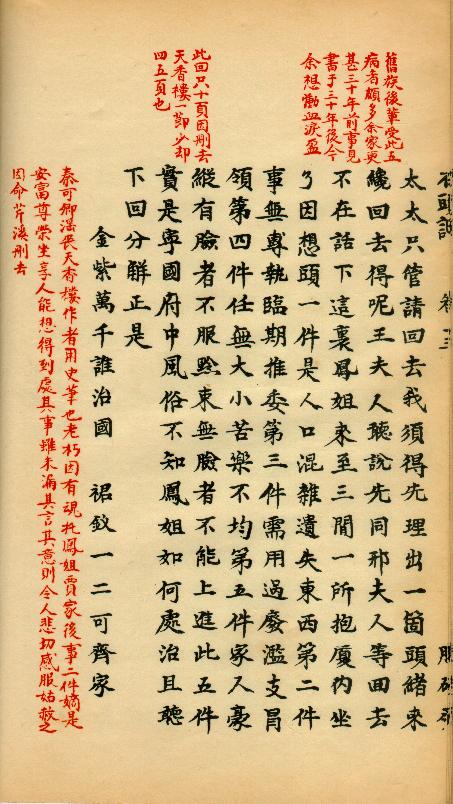 石頭記 卷十三 脂硯齋
舊族後輩受此五
病者頗多余家更
甚三十年前事見
書于三十年後今
余想慟血淚盈
此回只十頁因刪去
天香樓一節少却
四五頁也
太太只管請回去我須得先理出一箇頭緒來
纔回去得呢王夫人聽說先同邢夫人等回去
不在話下這裏鳳姐來至三間一所抱廈內坐
了因想頭一件是人口混雜遺失東西第二件
事無專執臨期推委第三件需用過廢濫支冒
領第四件任無大小苦樂不均第五件家人豪
縱有臉者不服黔束無臉者不能上進此五件
實是寧國府中風俗不知鳳姐如何處治且聽
下回分解正是
金紫萬千誰治國 裙釵一二可齊家
秦可卿淫喪天香樓作者用史筆也老朽因有魂托鳳姐賈家後事二件嫡是
安富尊榮坐享人能想得到處其事雖未漏其言其意則令人悲切感服姑赦之
因命芹溪刪去